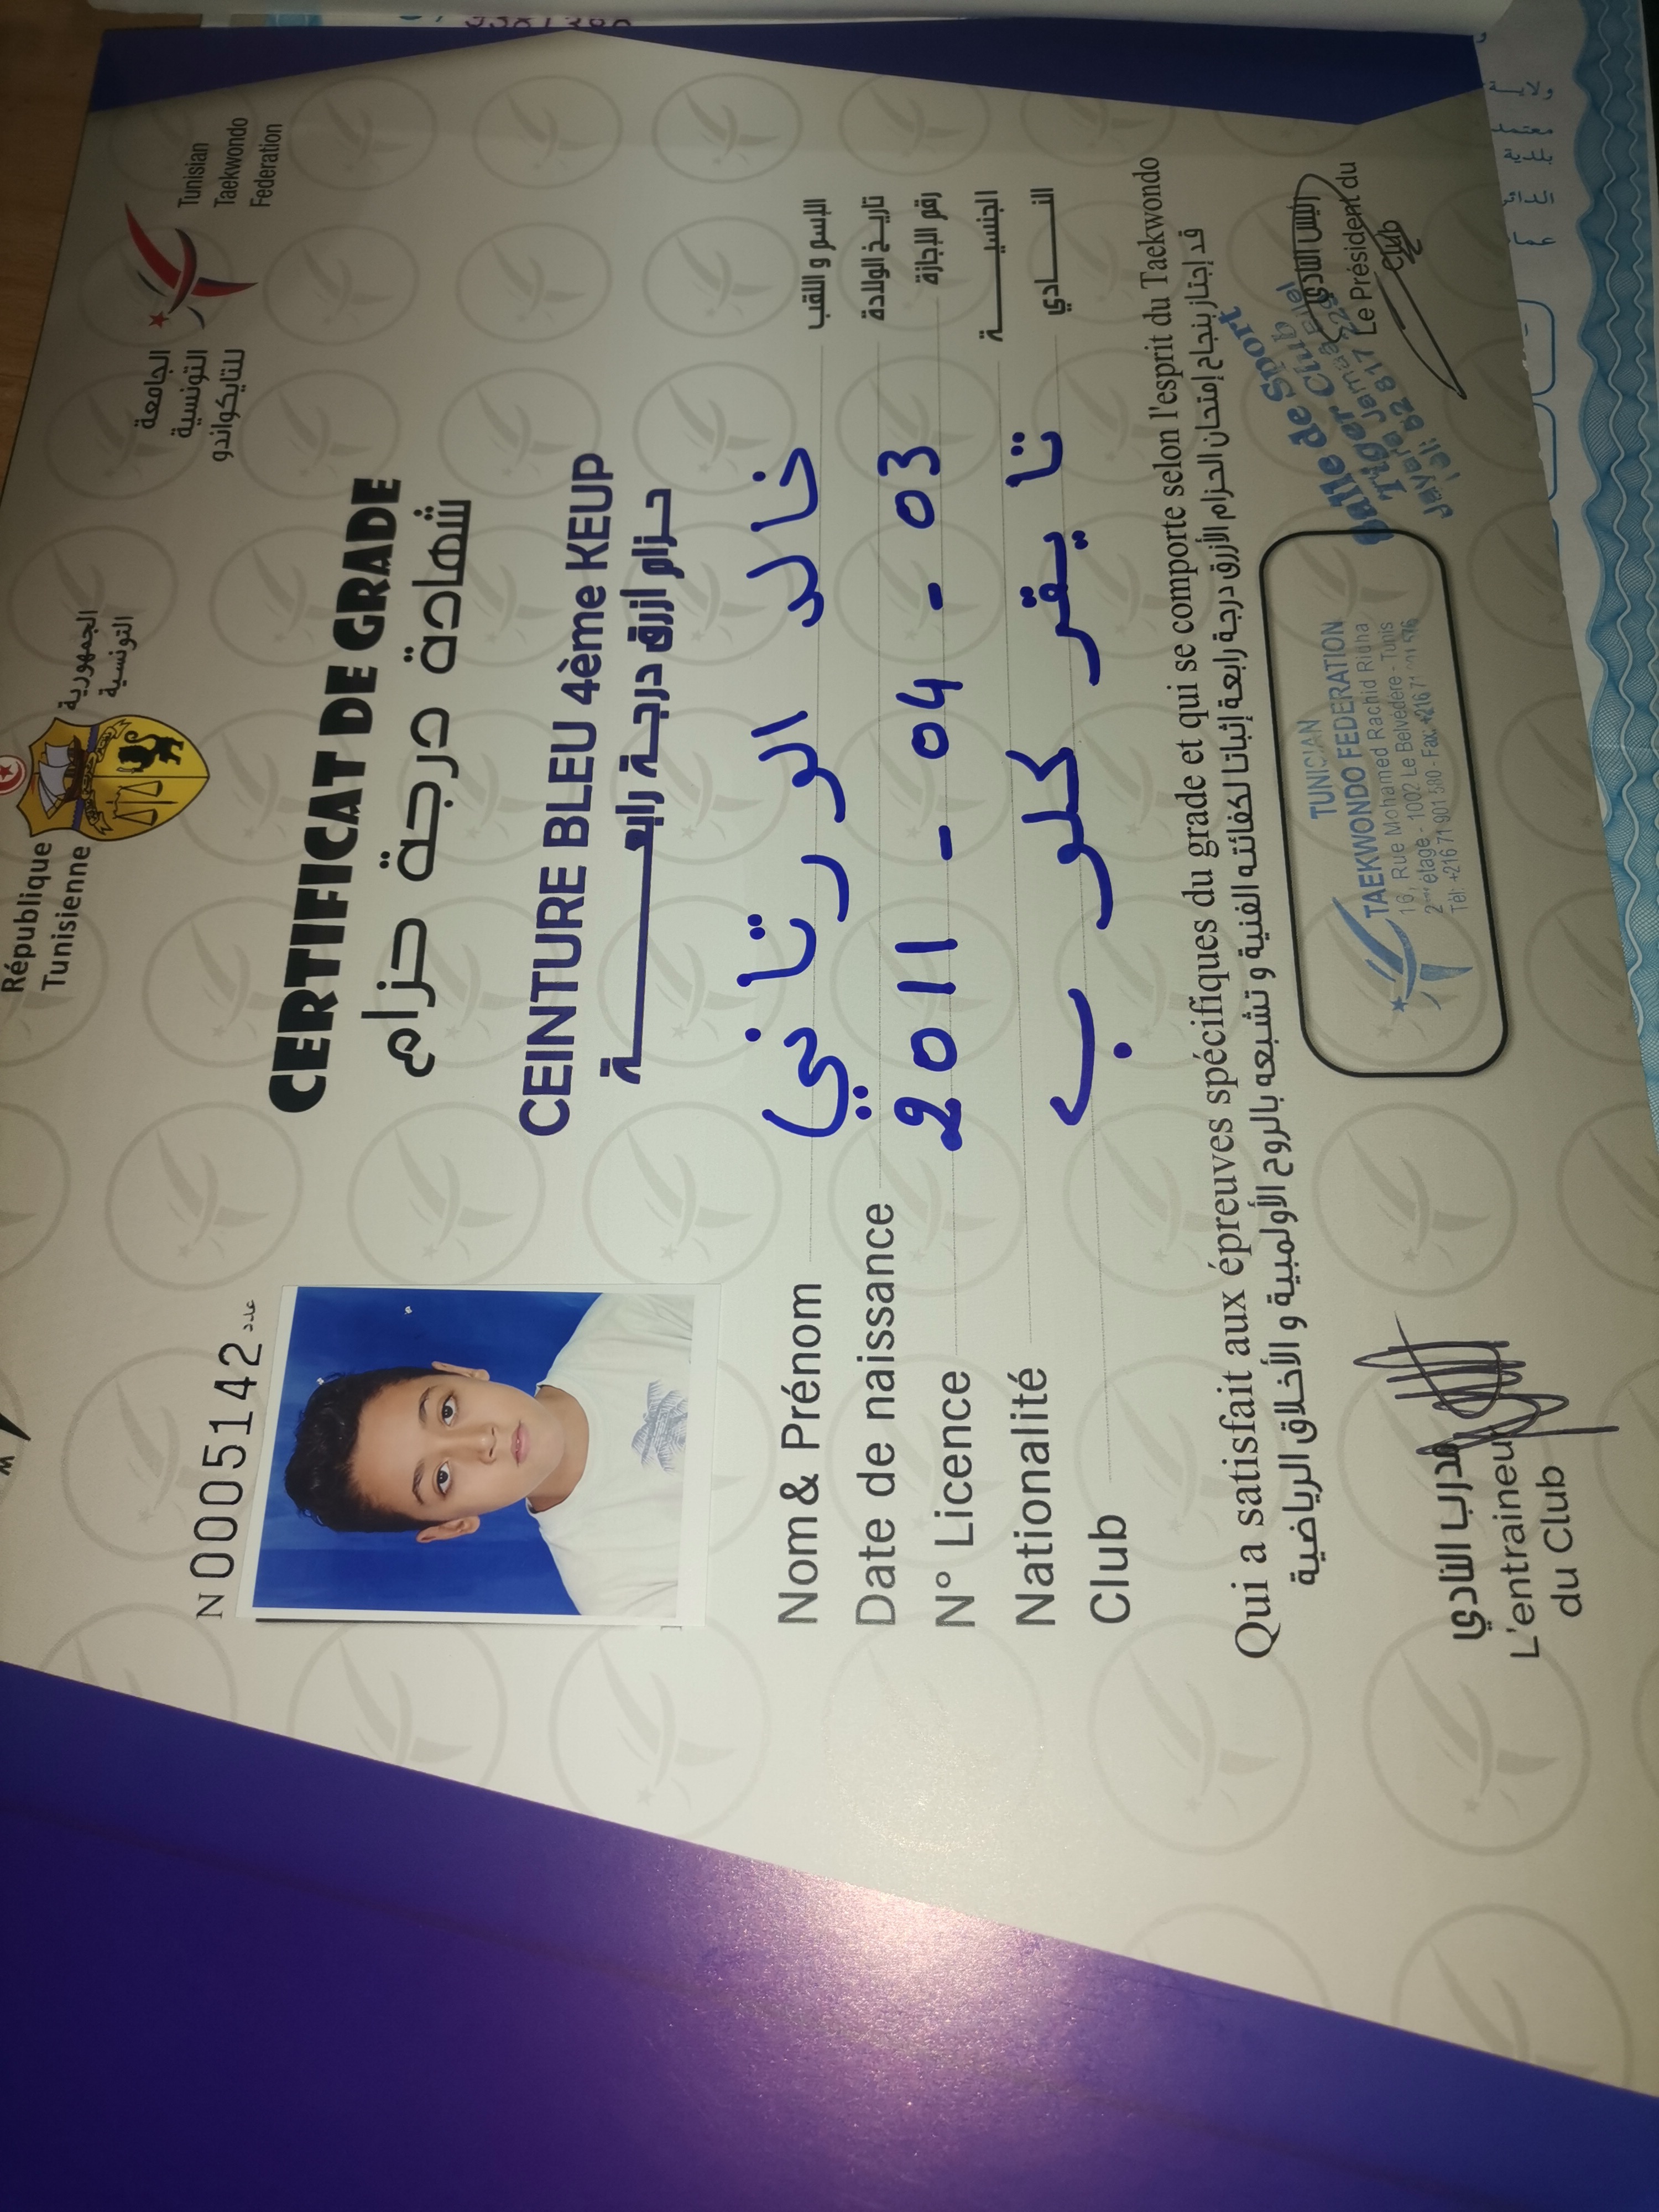 République
Tunisienne
الجمهورية
التونسية
الجامعة
التونسية
للتايكواندو
Tunisian
Taekwondo
Federation
N 0005142 عدد
CERTIFICAT DE GRADE
شهادة درجة حزام
CEINTURE BLEU 4ème KEUP
حزام ازرق درجة رابعة
Nom & Prénom خالد الورتاني الإسم و اللقب
Date de naissance 2011 - 04 - 03 تاريخ الولادة
N° Licence رقم الإجازة
Nationalité تايقر كلوب الجنسية
Club النادي
Qui a satisfait aux épreuves spécifiques du grade et qui se comporte selon l'esprit du Taekwondo
قد إجتاز بنجاح إمتحان الحزام الأزرق درجة رابعة إثباتا لكفائته الفنية و تشبعه بالروح الأولمبية و الأخلاق الرياضية
مدرب النادي
L'entraineur
du Club
TUNISIAN
TAEKWONDO FEDERATION
16, Rue Mohamed Rachid Ridha
2ème étage - 1002 Le Belvédère - Tunis
Tél: +216 71 901 580 - Fax: +216 71
Salle de Sport
Tiger Club
رئيس النادي
Le Président du
Club
ولاية
معتمد
بلدية
الدائر
عما